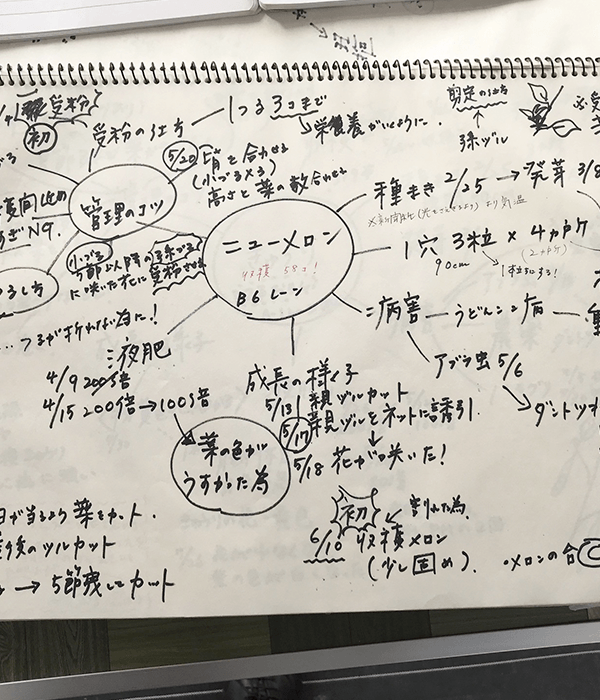 初
受粉の仕方 — 1つる3コまで
栄養がいくように.
剪定の仕方
孫ヅル
管理のコツ
5/20 肩を合わせる
(小づる×3)
高さと葉の数合わせる
小づる
5節以降の孫づる
に咲いた花に受粉させる
ニューメロン
収穫 58コ!
B6レーン
種まき 2/25 → 発芽 3/8
1穴 3粒 × 4カ所
90cm
(2カ所)
1粒にする!
病害 — うどんこ病
アブラ虫 5/6
ダントツ
...つるが折れる為に!
液肥
4/9 200倍
4/15 200倍→100倍
葉の色が
うすかった為
成長の様子
5/13 親ヅルカット
5/17 親ヅルをネットに誘引.
5/18 花が咲いた!
初
割れた為.
6/10 収穫メロン
(少し固め).
日が当るよう葉をカット.
後のツルカット
→ 5節残してカット
・メロンの合